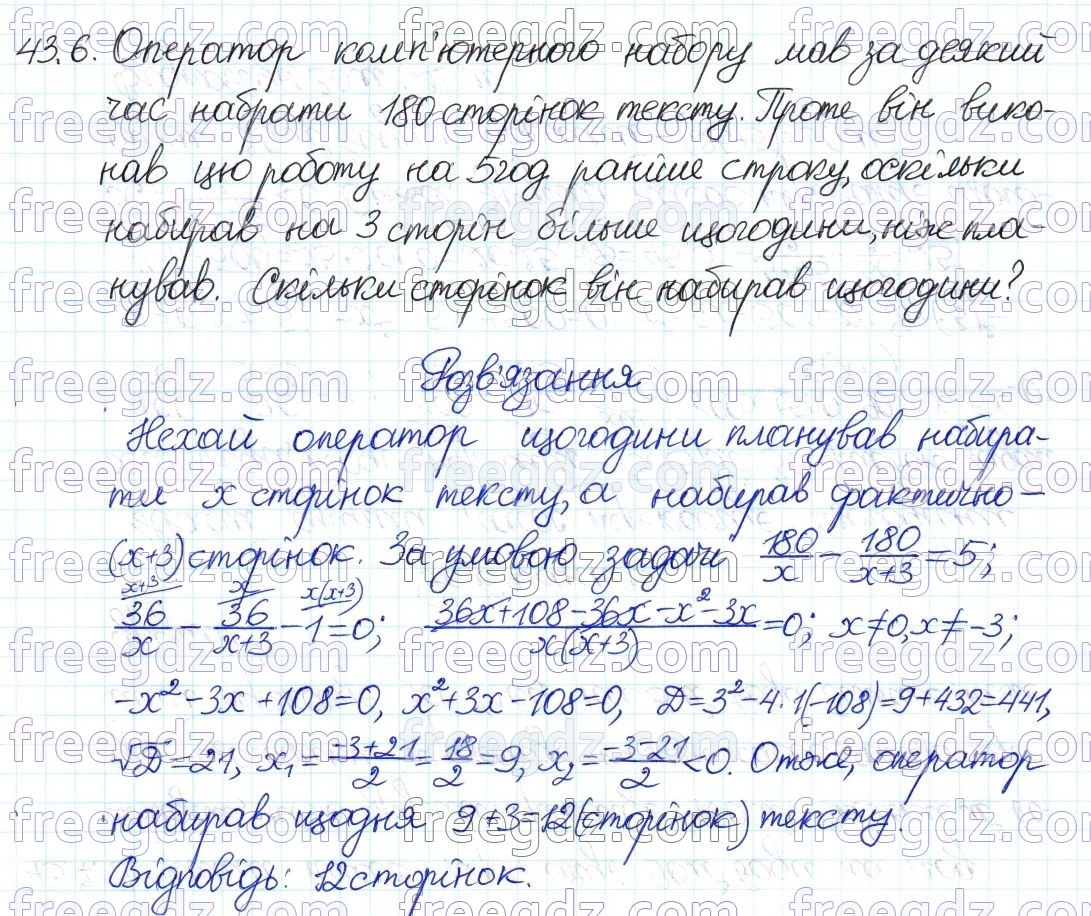 43.6. Оператор комп'ютерного набору мав за деякий
час набрати 180 сторінок тексту. Проте він вико-
нав цю роботу на 5 год раніше строку, оскільки
набирав на 3 сторін більше щогодини, ніж пла-
нував. Скільки сторінок він набирав щогодини?
Розв'язання
Нехай оператор щогодини планував набира-
ти x сторінок тексту, а набирав фактично –
(x+3) сторінок. За умовою задачі 180/x − 180/(x+3) = 5;
36/x (x+3) − 36/(x+3) (x) − 1 (x(x+3)) = 0; (36x+108−36x−x²−3x)/(x(x+3)) = 0; x≠0, x≠−3;
−x²−3x+108=0, x²+3x−108=0, D=3²−4·1(−108)=9+432=441,
√D=21, x₁=(−3+21)/2=18/2=9, x₂=(−3−21)/2<0. Отже, оператор
набирав щодня 9+3=12 (сторінок) тексту.
Відповідь: 12 сторінок.
freegdz.com